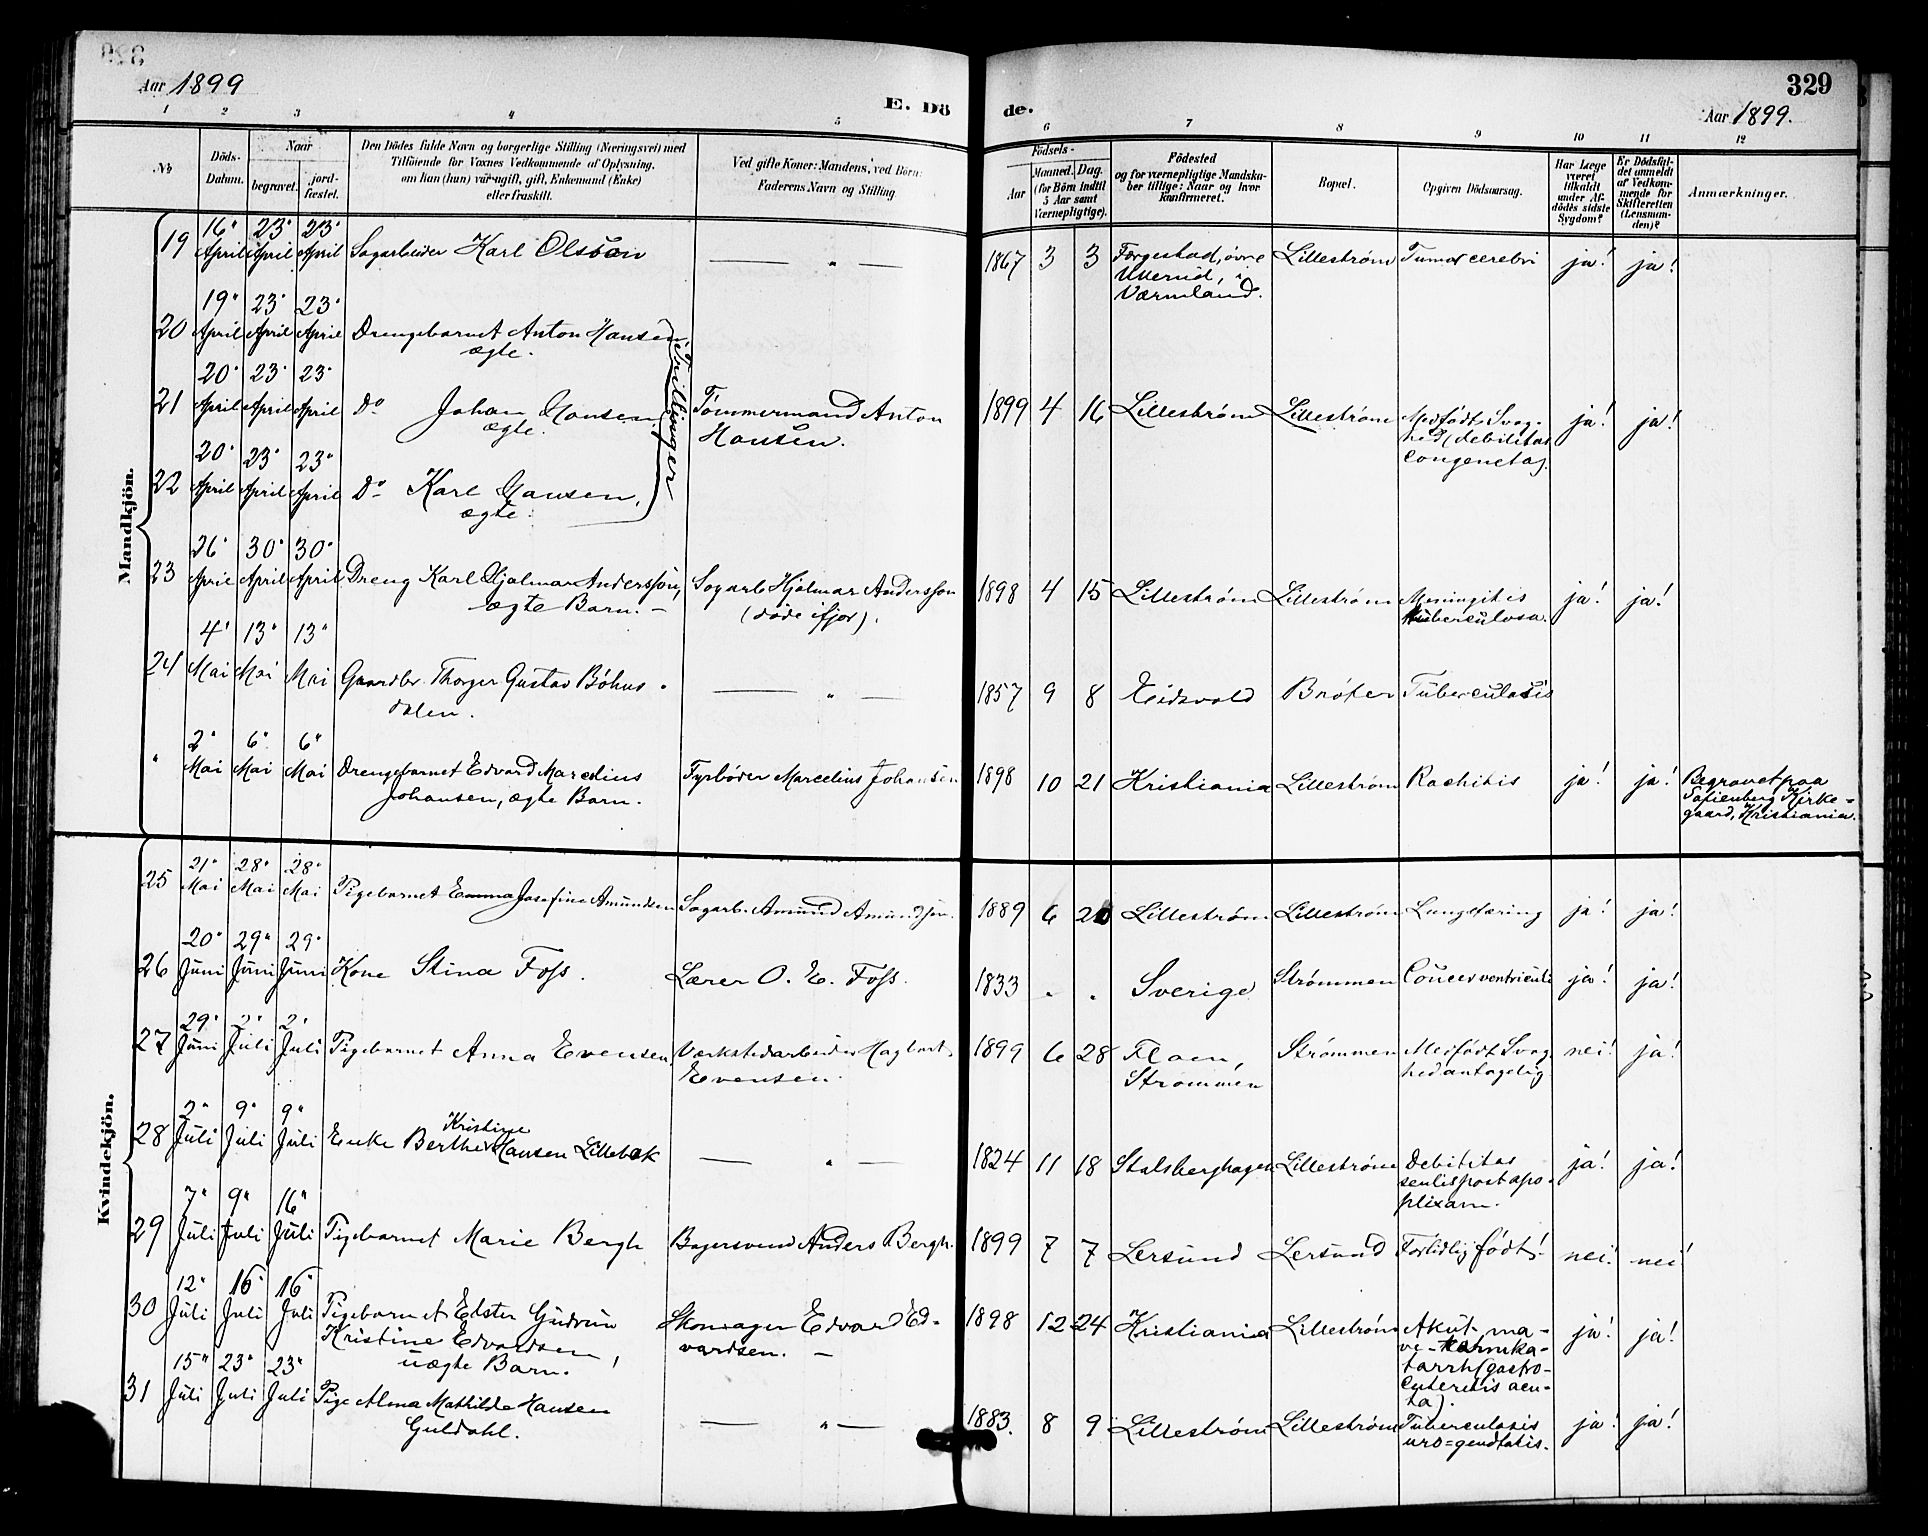 329
Aar 1899
E. Dö
de.
Aar 1899.
1 2 3 4 5 6 7 8 9 10 11 12
No
Döds-Datum.
Naar
begravet.
jord-fæstet.
Den Dödes fulde Navn og borgerlige Stilling (Næringsvei) med
Tilföiende for Voxnes Vedkommende af Oplysning,
om han (hun) var ugift, gift, Enkemand (Enke)
eller fraskilt.
Ved gifte Koner: Mandens, ved Börn:
Faderens Navn og Stilling
Födsels-
Aar
Maaned. Dag.
(for Börn indtil
5 Aar samt
Værnepligtige).
Födested
og for værnepligtige Mandska-
ber tillige: Naar og hvor
konfirmeret.
Bopæl.
Opgiven Dödsaarsag.
Har Læge
været
tilkaldt
under Af-
dödes sidste
Sygdom?
Er Dödsfal-
det anmeldt
af Vedkom-
mende for
Skifteretten
(Lensman-
den)?
Anmærkninger.
Mandkjön.
19 16" April 23" April 23" April Sagarbeider Karl Olsson — " — 1867 3 3 Færgestad, övre
Ullerud, i
Værmland. Lillestrøm Tumor cerebri ja! ja!
20 19" April 23" April 23" April Drengebarnet Anton Hansen,
ægte.
21 20" April 23" April 23" April Do Johan Hansen,
ægte.
Trillinger
Tømmermand Anton
Hansen. 1899 4 16 Lillestrøm Lillestrøm Medfødt Svag-
hed (debilitas
congenita). ja! ja!
22 20" April 23" April 23" April Do Karl Hansen,
ægte.
23 26" April 30" April 30" April Dreng Karl Hjalmar Anderssøn,
ægte Barn. — Sagarb Hjalmar Anderssøn
(døde ifjor). 1898 4 15 Lillestrøm Lillestrøm Meningitis
tuberculosa. ja! ja!
24 4" Mai 13" Mai 13" Mai Gaardbr. Thorger Gustav Bóhus
dalen. — " — 1857 9 8 Eidsvold Bróter Tuberculosis
" 2" Mai 6" Mai 6" Mai Drengebarnet Edvard Marcelius
Johansen, ægte Barn. Fyrbøder Marcelius Johansen 1898 10 21 Kristiania Lillestrøm Rachitis ja! ja! Begravet paa
Sofienberg Kirke-
gaard, Kristiania.
Kvindekjön.
25 21" Mai 28" Mai 28" Mai Pigebarnet Emma Josefine Amundsen Sagarb. Amund Amundsen 1889 6 20 Lillestrøm Lillestrøm Lungetæring ja! ja!
26 20" Juni 29" Juni 29" Juni Kone Stina Foss. Lærer O. E. Foss. 1833 " " Sverige Strømmen Cancer ventriculi ja! ja!
27 29" Juni 2" Juli 2" Juli Pigebarnet Anna Evensen, Værkstedarbeider Hagbart
Evensen. 1899 6 28 Flaen,
Strømmen Strømmen Medfødt Svag-
hed antagelig nei! ja!
28 2" Juli 9" Juli 9" Juli Enke Berthe Kristine Hansen Lillebæk — " — 1824 11 18 Stalsberghagen Lillestrøm Debilitas
senilis post apo-
plexiam. ja! ja!
29 7" Juli 9" Juli 16" Juli Pigebarnet Marie Bergh Bagersvend Anders Bergh. 1899 7 7 Lersund Lersund Fortidlig født! nei! nei!
30 12" Juli 16" Juli 16" Juli Pigebarnet Ester Gudrun
Kristine Edvardsen,
uægte Barn. Skomager Edvard Ed-
vardsen. — 1898 12 24 Kristiania Lillestrøm Akut ma-
ve-tarmka-
tarrh (gastro-
enteritis acu-
ta). ja! ja!
31 15" Juli 23" Juli 23" Juli Pige Alma Mathilde Hansen
Guldahl. — " — 1883. 8 9 Lillestrøm Lillestrøm Tuberculosis
uro=genitalis. ja! ja!